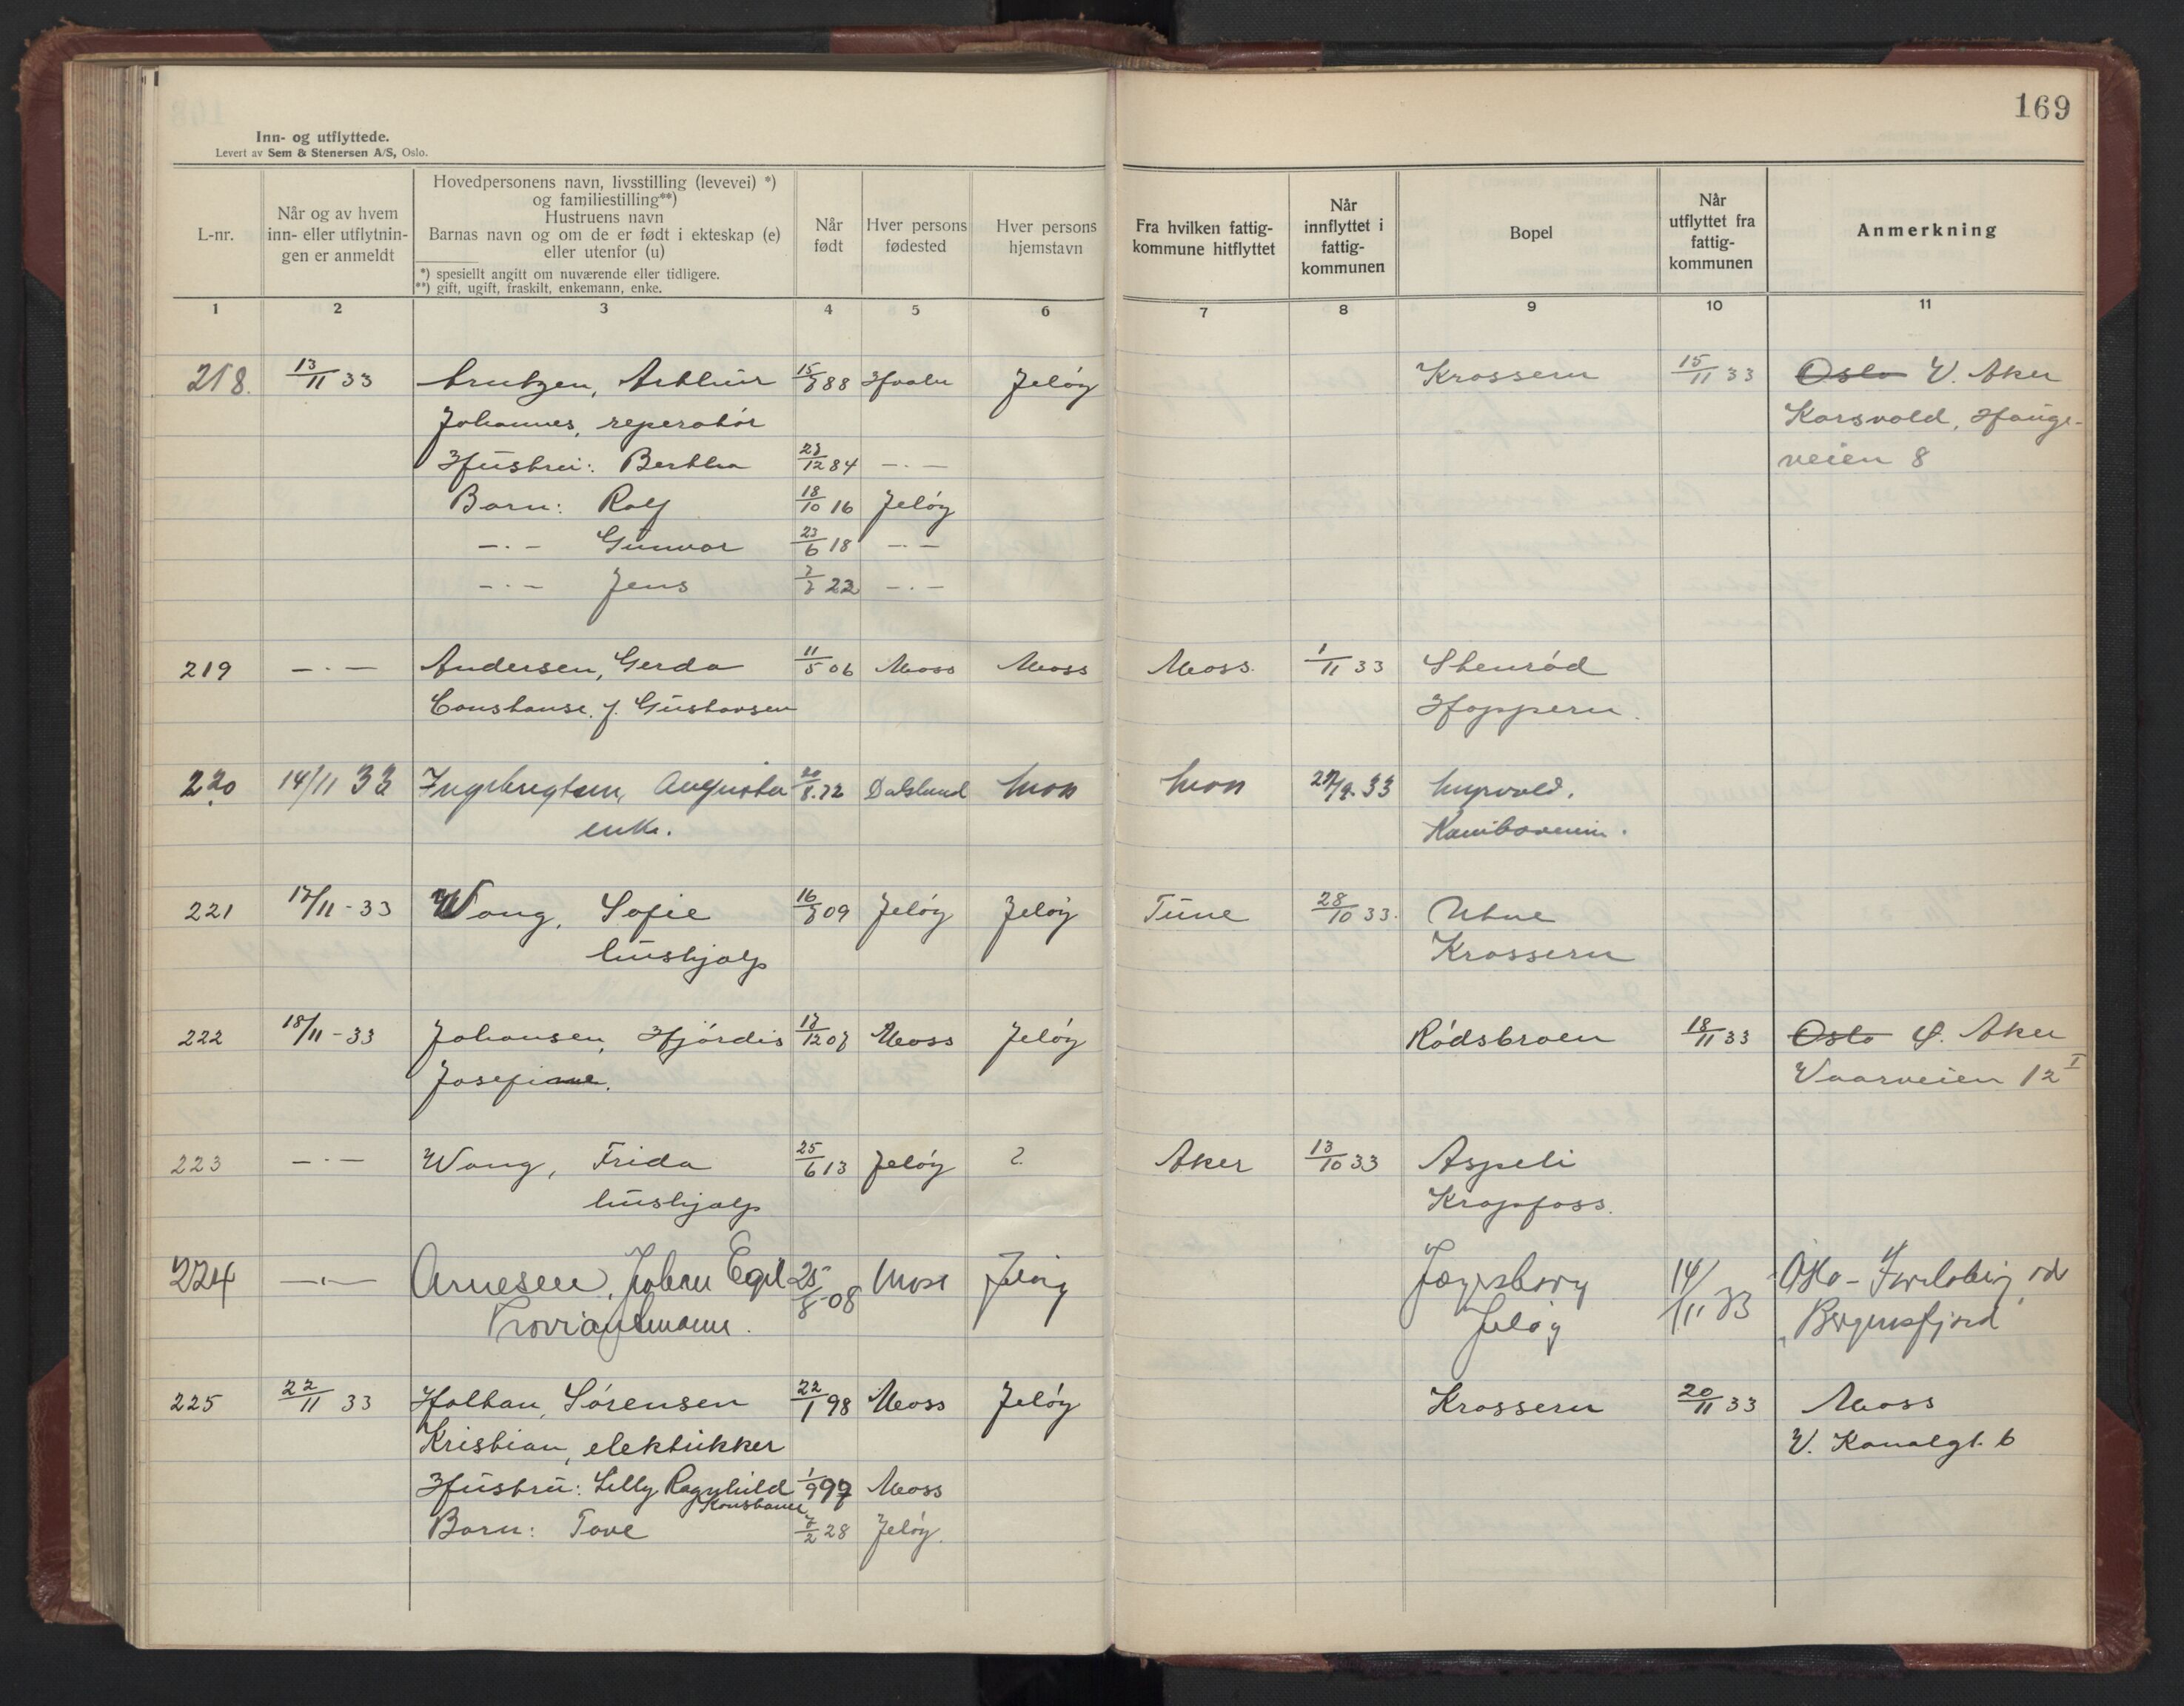 169
Inn- og utflyttede.
Levert av Sem & Stenersen A/S, Oslo.
L-nr.
Når og av hvem inn- eller utflytnin-gen er anmeldt
Hovedpersonens navn, livsstilling (levevei) *)
og familiestilling**)
Hustruens navn
Barnas navn og om de er født i ekteskap (e)
eller utenfor (u)
*) spesielt angitt om nuværende eller tidligere.
**) gift, ugift, fraskilt, enkemann, enke.
Når født
Hver persons fødested
Hver persons hjemstavn
Fra hvilken fattig-kommune hitflyttet
Når innflyttet i fattig-kommunen
Bopel
Når utflyttet fra fattig-kommunen
Anmerkning
1 2 3 4 5 6 7 8 9 10 11
218. 13/11 33 Arntzen, Arthur 15/7 88 Hvaler Jeløy Krossern 15/11 33 Oslo V. Aker
Johannes, reperatør Korsvold, Hauge-
Hustru: Bertha 23/12 84 —·— veien 8
Barn: Rolf 18/10 16 Jeløy
—·— Gunvor 23/6 18 —·—
—·— Jens 7/7 22 —·—
219 —·— Andersen, Gerda 11/5 06 Moss Moss Moss. 1/11 33 Stenrød
Constanse. f. Gustavsen Hoppern.
220 14/11 33 Ingebrigtsen, Augusta 20/8.72 Dalsland Moss Moss 27/9.33 Myrvold.
enke. Kamboveien.
221 17/11-33 Wang, Sofie 16/7 09 Jeløy Jeløy Tune 28/10 33. Utne
hushjalp Krossern
222 18/11-33 Johansen, Hjørdis 17/12 07 Moss Jeløy Rødsbroen 18/11 33 Oslo Ø. Aker
Josefine. Vaarveien 12 I
223 —·— Wang, Frida 25/6 13 Jeløy ? Aker 13/10 33 Aspeli
hushjalp Kropfoss.
224 —·— Arnesen, Johan Egil 25/8-08 Moss Jeløy Jægersborg 14/11 33 Oslo-
Proviantmann. Jeløy "Bergensfjord
225 22/11 33 Holtan, Sørensen 22/1 98 Moss Jeløy Krossern 20/11 33 Moss
Kristian, elektrikker V. Kanalgt. 6
Hustru: Lilly Ragnhild 1/9 97 Moss
Konstanse
Barn: Tove 7/2 28 Jeløy.